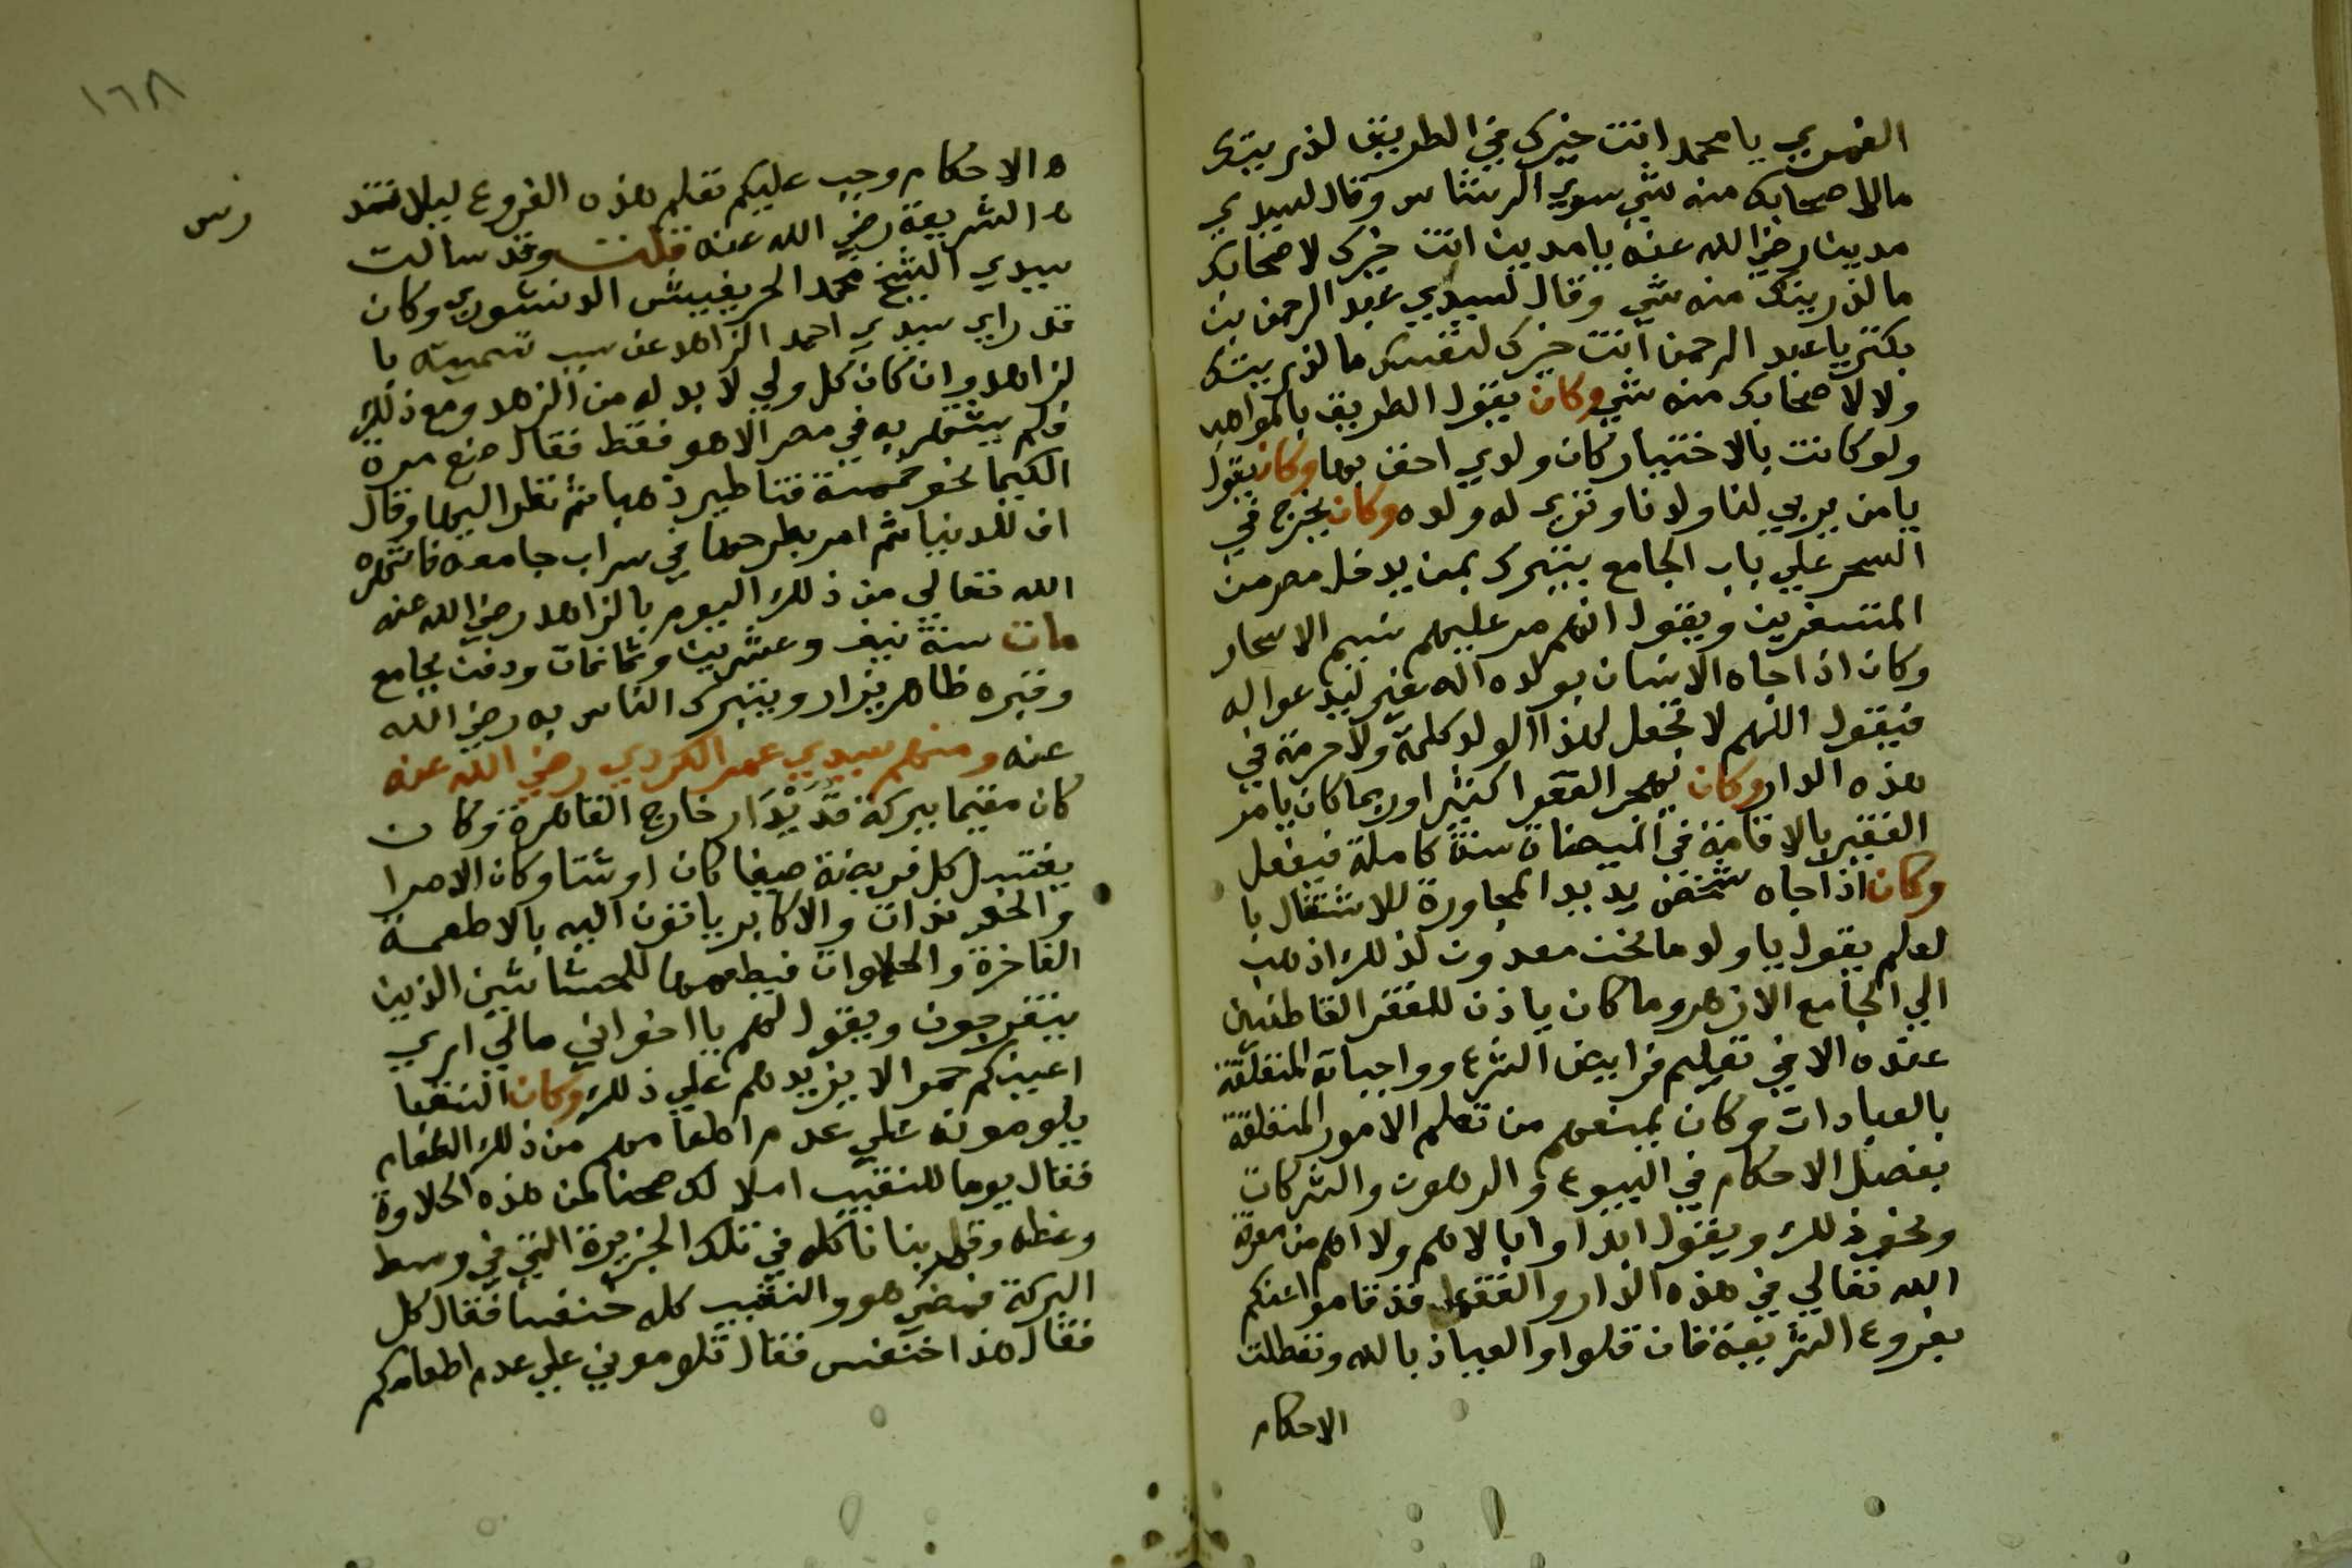 الغمري يا محمد انت خيرك في الطريق لذريتك
مالاصحابك منه شي سوي الرشاش وقال لسيدي
مدين رضي الله عنه يا مدين انت خيرك لاصحابك
ما لذريتك منه شي وقال لسيدي عبد الرحمن بن
بكتر يا عبد الرحمن انت خيرك لنفسك ما لذريتك
ولا لاصحابك منه شي وكان يقول الطريق بالمواهب
ولو كانت بالاختيار كان ولدي احق بها وكان يقول
يا من يربي لنا ولدنا ونربي له ولده وكان يخرج في
السحر علي باب الجامع يتبرك بمن يدخل مصر من
المتسفرين ويقول انهم مر عليهم نسيم الاسحار
وكان اذا جاه الانسان بولده اله صغير ليدعوا له
فيقول اللهم لا تجعل لهذا الولد كلمة ولا حرمة في
هذه الدار وكان يهجر الفقرا كثيرا وربما كان يامر
الفقير بالاقامة في الميضاة سنة كاملة فيفعل
وكان اذا جاه شخص يريد المجاورة للاشتغال با
لعلم يقول يا ولد ما نحن معدون لذلك اذهب
الي الجامع الازهر وما كان ياذن للفقرا القاطنين
عنده الا في تعليم فرايض الشرع وواجباته المتعلقة
بالعبادات وكان يمنعهم من تعلم الامور المتعلقة
بفصل الاحكام في البيوع والرهون والشركات
ونحو ذلك ويقول ابدا وا بالاهم ولا اهم من معرفة
الله تعالي في هذه الدار والفقها قد قاموا عنكم
بفروع الشريعة فان قلوا والعياذ بالله وتعطلت
الاحكام
١٦٨
ه الاحكام وجب عليكم تعلم هذه الفروع ليلا تند
رس
ه الشريعة رضي الله عنه قلت وقد سالت
سيدي الشيخ محمد الحريفيش الدنشوري وكان
قد راي سيدي احمد الزاهد عن سبب تسميته با
لزاهد وان كان كل ولي لا بد له من الزهد ومع ذلك
فلم يشتهر به في مصر الا هو فقط فقال صنع مرة
الكيما نحو خمسة قناطير ذهبا ثم نظر اليها وقال
اف للدنيا ثم امر بطرحها في سراب جامعه فاشهره
الله تعالي من ذلك اليوم بالزاهد رضي الله عنه
مات سنة نيف وعشرين وثمانمات ودفن بجامع
وقبره ظاهر يزار ويتبرك الناس به رضي الله
عنه ومنهم سيدي عمر الكردي رضي الله عنه
كان مقيما ببركة قديدار خارج القاهرة وكان
يغتسل كل فريضة صيفا كان او شتا وكان الامرا
والخوندات والاكابر ياتون اليه بالاطعمة
الفاخرة والحلاوات فيطعمها للحشاشين الذين
يتفرجون ويقول لهم يا اخواني مالي اري
اعينكم حمرا لا يزيدهم علي ذلك وكان النقبا
يلومونه علي عدم اطعامهم من ذلك الطعام
فقال يوما للنقيب املا لك صحنا من هذه الحلاوة
وغطه وقل بنا ناكله في تلك الجزيرة التي في وسط
البركة فمضي هو والنقيب كله خنفسا فقال كل
فقال هذا خنفس فقال تلوموني علي عدم اطعامكم